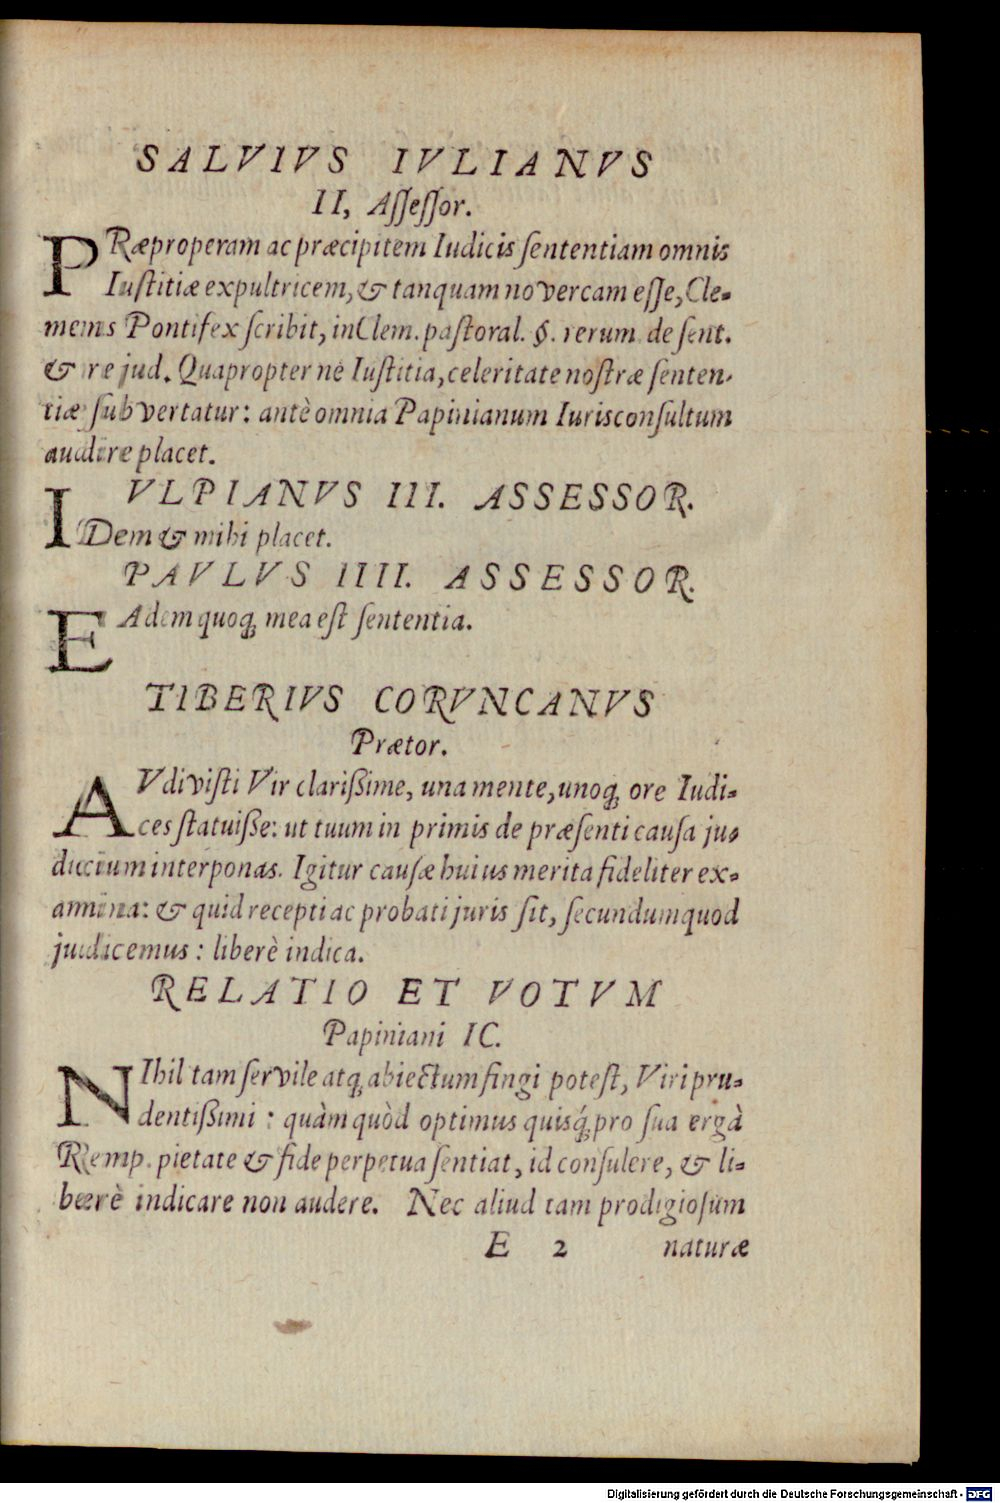 SALVIVS IVLIANVS
II, Aſſeſſor.
PRæproperam ac præcipitem Iudicis ſententiam omnis
Iuſtitiæ expultricem, & tanquam novercam eſſe, Cle-
mens Pontifex ſcribit, in Clem. paſtoral. §. rerum de ſent.
& re jud. Quapropter nè Iuſtitia, celeritate noſtræ ſenten-
tiæ ſubvertatur: antè omnia Papinianum Iurisconſultum
audire placet.
VLPIANVS III. ASSESSOR.
IDem & mihi placet.
PAVLVS IIII. ASSESSOR.
EAdem quoq; mea eſt ſententia.
TIBERIVS CORVNCANVS
Prætor.
AVdiviſti Vir clariſſime, una mente, unoq; ore Iudi-
ces ſtatuiſſe: ut tuum in primis de præſenti cauſa ju-
dicium interponas. Igitur cauſæ huius merita fideliter ex-
amina: & quid recepti ac probati juris ſit, ſecundum quod
judicemus: liberè indica.
RELATIO ET VOTVM
Papiniani IC.
NIhil tam ſervile atq; abiectum fingi poteſt, Viri pru-
dentiſſimi: quàm quòd optimus quisq́; pro ſua ergà
Remp. pietate & fide perpetua ſentiat, id conſulere, & li-
berè indicare non audere. Nec aliud tam prodigioſum
E 2 naturæ
Digitalisierung gefördert durch die Deutsche Forschungsgemeinschaft - DFG